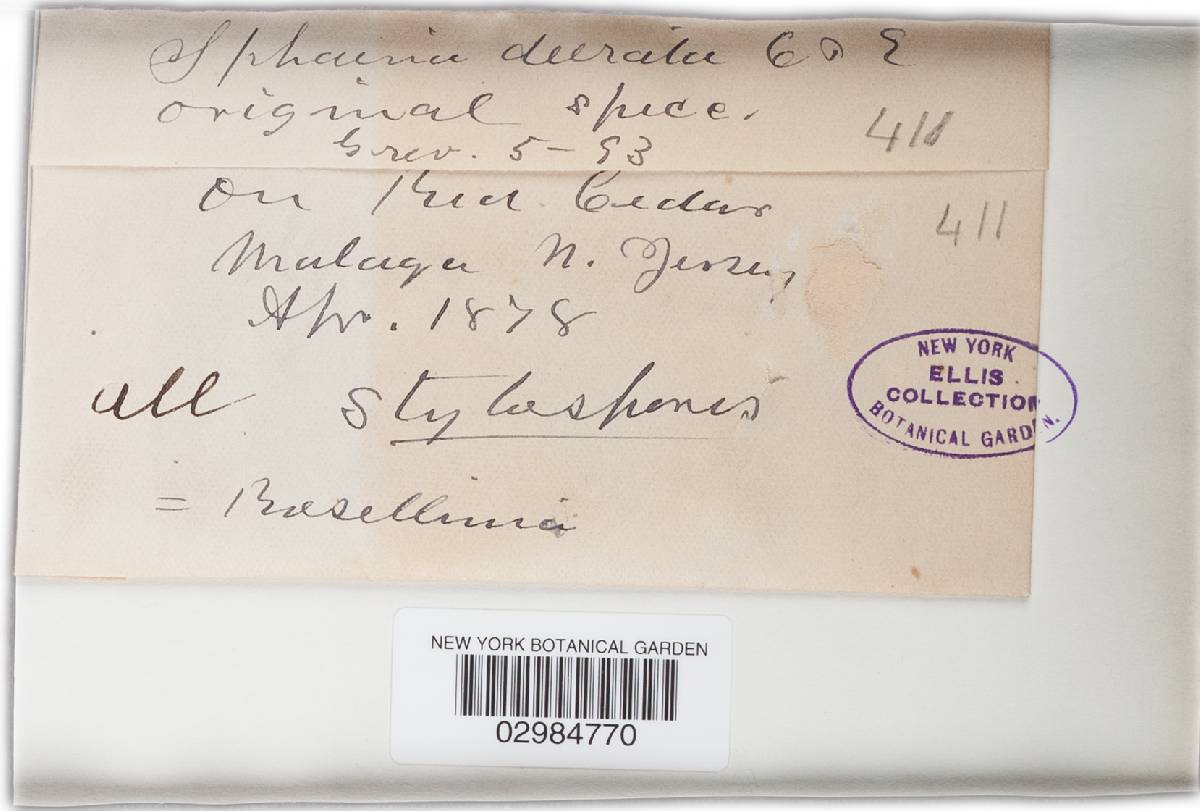 Sphaeria deerata C & E
original spec.
Grev. 5-93
411
on Red Cedar
411
Malaga N. Jersey
Apr. 1878
all stylospores
= Rosellinia
NEW YORK
ELLIS
COLLECTION
BOTANICAL GARDEN.
NEW YORK BOTANICAL GARDEN
02984770